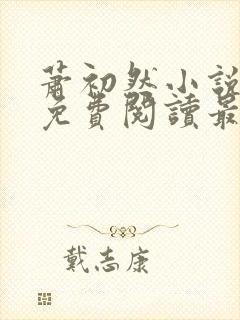 蕭初然小說
免費閱讀最
戴志康